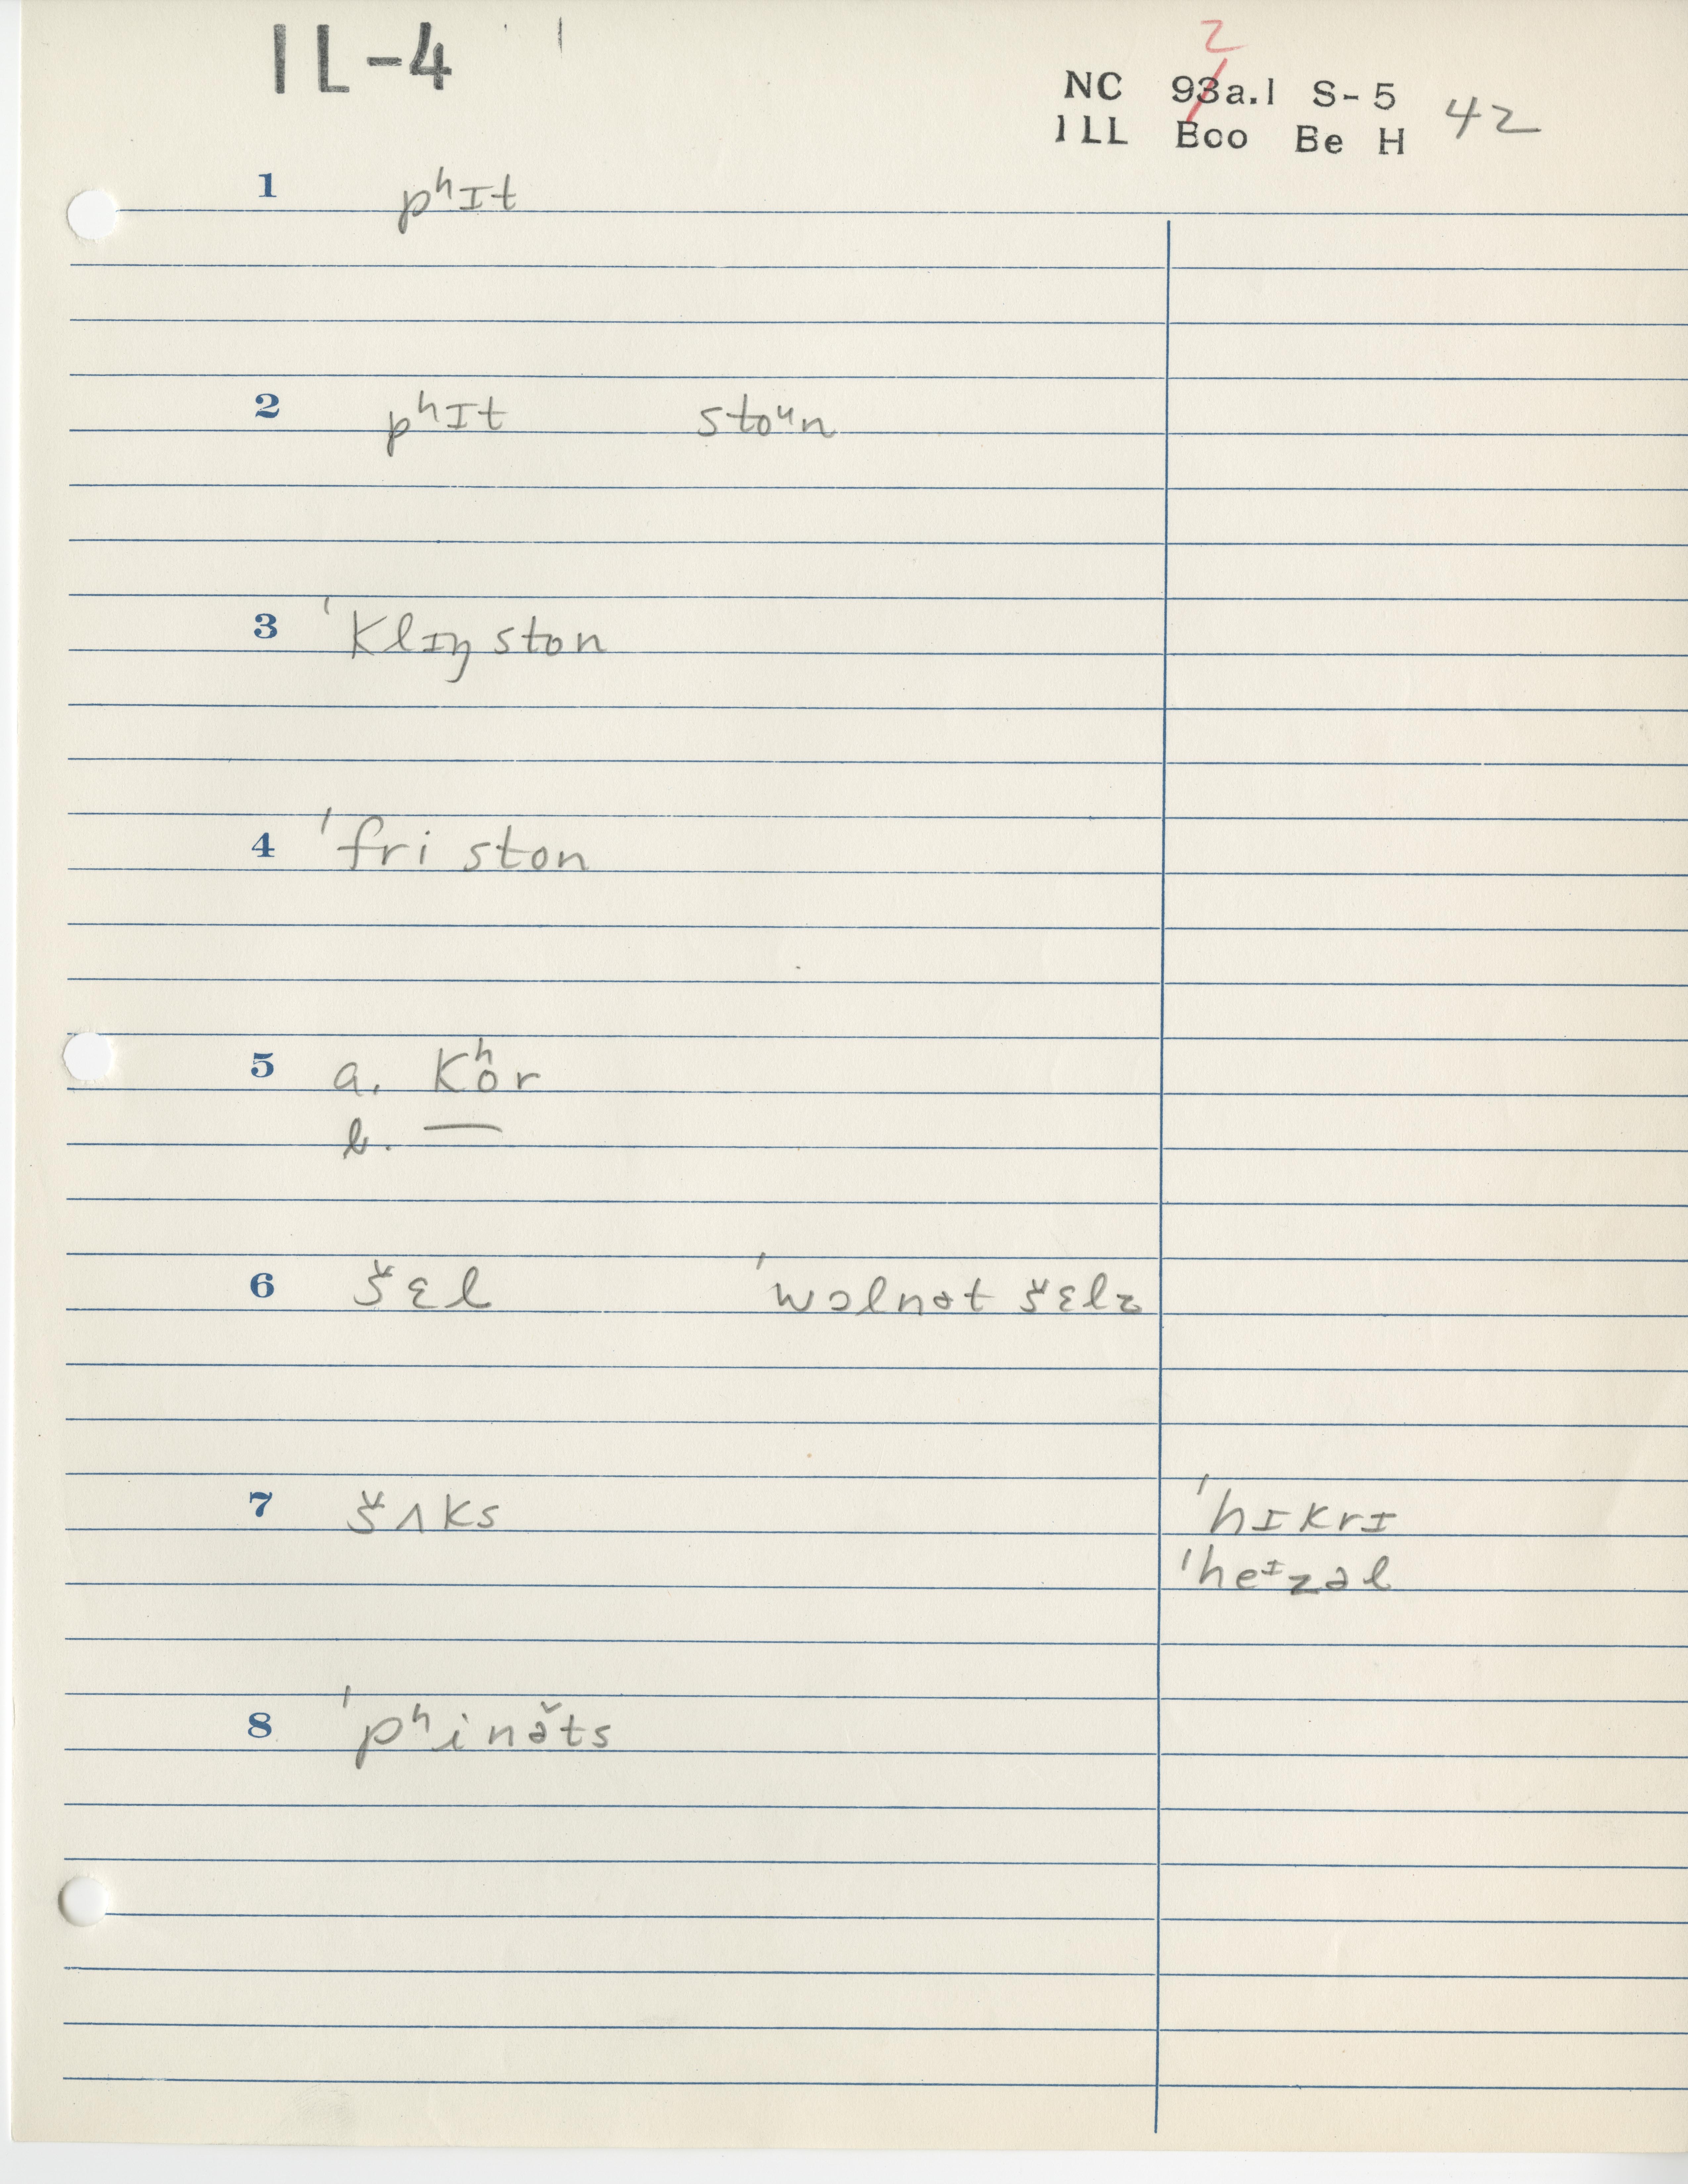 IL-4
2
NC 93a.1 S-5
ILL Boo Be H 42
1 pʰɪt
2 pʰɪt stoᶸn
3 ˈklɪŋ ston
4 ˈfri ston
5 a. kʰor
b. —
6 šɛl ˈwɔlnət šɛlz
7 šʌks ˈhɪkrɪ
ˈheᶦzəl
8 ˈpʰinə̆ts